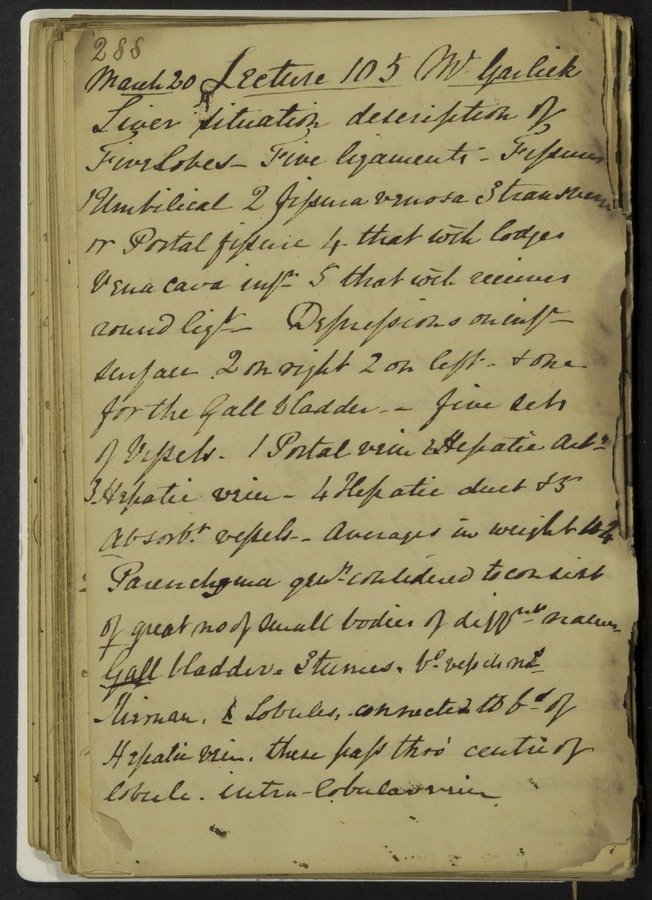 288
March 20 Lecture 105 Mr Garlick
Liver situation description of
Five Lobes - Five ligaments - Fissures
1 Umbilical 2 fissura venosa 3 transverse
or Portal fissure 4 that wch lodges
Vena cava infr 5 that wch receives
round ligt - Depressions on infr
surface 2 on right 2 on left - & one
for the Gall bladder - - five sets
of Vessels - 1 Portal vein 2 Hepatic Arty
3 Hepatic vein - 4 Hepatic duct & 5
Absorbt vessels - Averages in weight
Parenchyma genly considered to consist
of great no of small bodies of diffrnt nature
Gall bladder - 3 tunics - bd vessels
Kiernan. Lobules, connected to bd of
Hepatic vein. these pass thro' centre of
lobule. intra-lobular vein